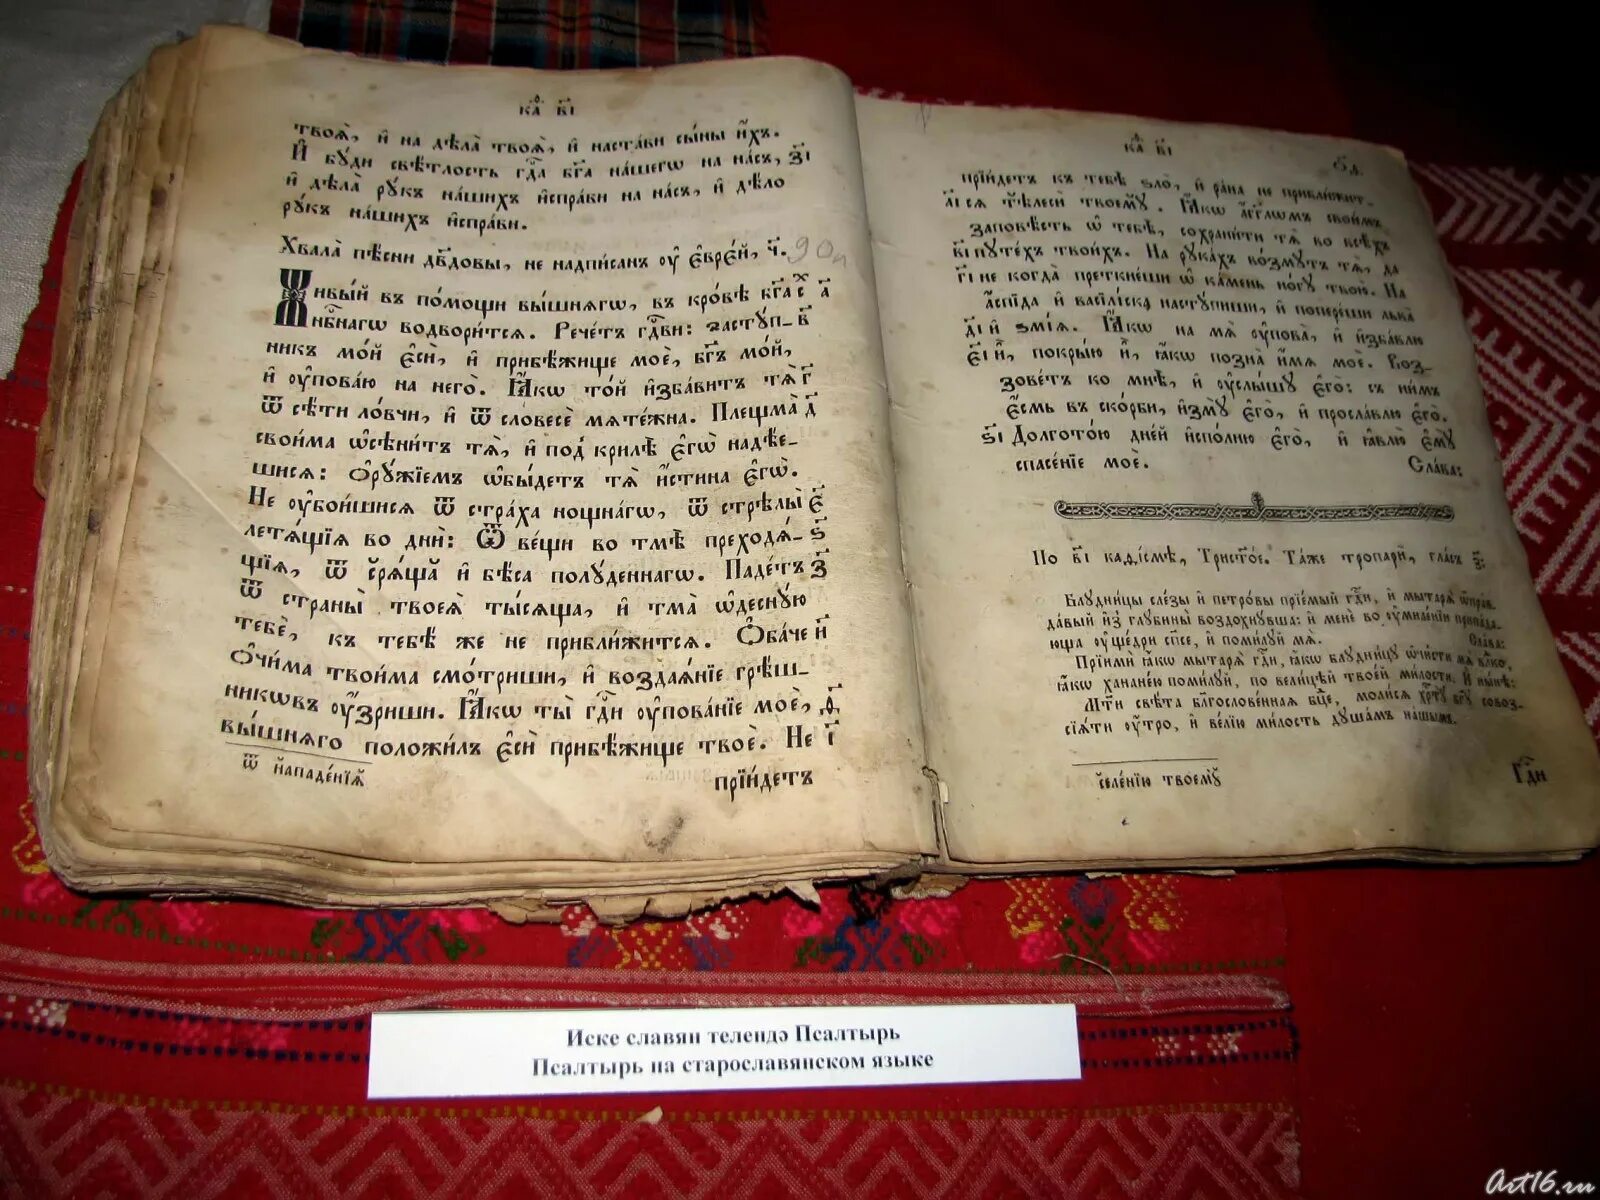 каѳ в҃і
твоѧ̀, и҆ на дѣла̀ твоѧ̀, и҆ наста́ви сы́ны и҆́хъ.
И҆ бꙋ́ди свѣ́тлость гд҇а бг҃а на́шегѡ на на́съ, з҃і
и҆ дѣла̀ рꙋ́къ на́шихъ и҆спра́ви на на́съ, и҆ дѣ́ло
рꙋ́къ на́шихъ и҆спра́ви.
Хвала̀ пѣ́сни дв҃довы, не надпи́санъ ᲂу҆ є҆врє́й, ч҃.
90
Живы́й въ по́мощи вы́шнѧгѡ, въ кро́вѣ бг҃а с а҃
нбⷭ҇нагѡ водвори́тсѧ. Рече́тъ гдⷭ҇ви: застꙋ́п- в҃
никъ мо́й є҆сѝ, и҆ прибѣ́жище моѐ, бг҃ъ мо́й,
и҆ ᲂу҆пова́ю на него̀. Ꙗ҆́кѡ то́й и҆зба́витъ тѧ̀ г҃
ѿ сѣ́ти ло́вчи, и҆ ѿ словесѐ мѧте́жна. Плещма̀ д҃
свои́ма ѡ҆сѣни́тъ тѧ̀, и҆ под̾ крилѣ̀ є҆гѡ̀ надѣ́е-
шисѧ: Ѻ҆рꙋ́жїемъ ѡ҆бы́детъ тѧ̀ и҆́стина є҆гѡ̀.
Не ᲂу҆бои́шисѧ ѿ стра́ха нощна́гѡ, ѿ стрѣлы̀ є҃
летѧ́щїѧ во днѝ: Ѿ ве́щи во тмѣ̀ преходѧ́- ѕ҃
щїѧ, ѿ срѧ́ща и҆ бѣ́са полꙋ́деннагѡ. Паде́тъ з҃
ѿ страны̀ твоеѧ̀ ты́сѧща, и҆ тма̀ ѡ҆деснꙋ́ю
тебѐ, къ тебѣ́ же не прибли́житсѧ. Ѻ҆ба́че и҃
ѻ҆чи́ма твои́ма смо́триши, и҆ воздаѧ́нїе грѣ́ш-
никѡвъ ᲂу҆́зриши. Ꙗ҆́кѡ ты̀ гдⷭ҇и ᲂу҆пова́нїе моѐ, ѳ҃
вы́шнѧго положи́лъ є҆сѝ прибѣ́жище твоѐ. Не і҃
ѿ нападе́нїѧ
прїи́детъ
каѳ в҃і
прїи́детъ къ тебѣ̀ ѕло̀, и҆ ра́на не прибли́жит-
а҃і сѧ тѣлесѝ твоемꙋ̀. Ꙗ҆́кѡ а҆́гг҃лѡмъ свои́мъ
заповѣ́сть ѡ҆ тебѣ̀, сохрани́ти тѧ̀ во всѣ́хъ
в҃і пꙋте́хъ твои́хъ. На рꙋка́хъ во́змꙋтъ тѧ̀, да
г҃і не когда̀ преткне́ши ѡ҆ ка́мень но́гꙋ твою̀. На
а҆́спїда и҆ васїлі́ска настꙋ́пиши, и҆ попере́ши льва̀
д҃і и҆ ѕмі́ѧ. Ꙗ҆́кѡ на мѧ̀ ᲂу҆пова̀, и҆ и҆зба́влю
є҃і и҆̀, покры́ю и҆̀, ꙗ҆́кѡ позна̀ и҆́мѧ моѐ. Воз-
зове́тъ ко мнѣ̀, и҆ ᲂу҆слы́шꙋ є҆го̀: съ ни́мъ
є҆́смь въ ско́рби, и҆змꙋ̀ є҆го̀, и҆ просла́влю є҆го̀.
ѕ҃і Долгото́ю дне́й и҆спо́лню є҆го̀, и҆ ꙗ҆влю̀ є҆мꙋ̀
спасе́нїе моѐ. Сла́ва:
По в҃і каѳі́смѣ, Трист҃о́е. Та́же тропарѝ, гла́съ з҃:
Блꙋдни́цы сле́зы и҆ петро́вы прїе́мый гдⷭ҇и, и҆ мытарѧ̀ ѡ҆прав-
да́вый и҆з̾ глꙋбины̀ воздохнꙋ́вша: и҆ менѐ во ᲂу҆миле́нїи припа́да-
юща ᲂу҆ще́дри сп҃се, и҆ поми́лꙋй мѧ̀. Сла́ва:
Прїимѝ ꙗ҆́кѡ мытарѧ̀ гдⷭ҇и, ꙗ҆́кѡ блꙋдни́цꙋ ѡ҆чи́сти мѧ̀ влⷣко,
ꙗ҆́кѡ ханане́ю поми́лꙋй, по вели́цѣй твое́й ми́лости. И҆ ны́нѣ:
Мт҃и свѣ́та бл҃гослове́ннаѧ бц҃е, моли́сѧ хрⷭ҇тꙋ̀ бг҃ꙋ совоз-
сїѧ́ти ᲂу҆́тро, и҆ ве́лїю ми́лость дꙋша́мъ на́шымъ.
селе́нїю твоемꙋ̀
Гдⷭ҇и
Иске славян телендә Псалтырь
Псалтырь на старославянском языке
Art16.ru